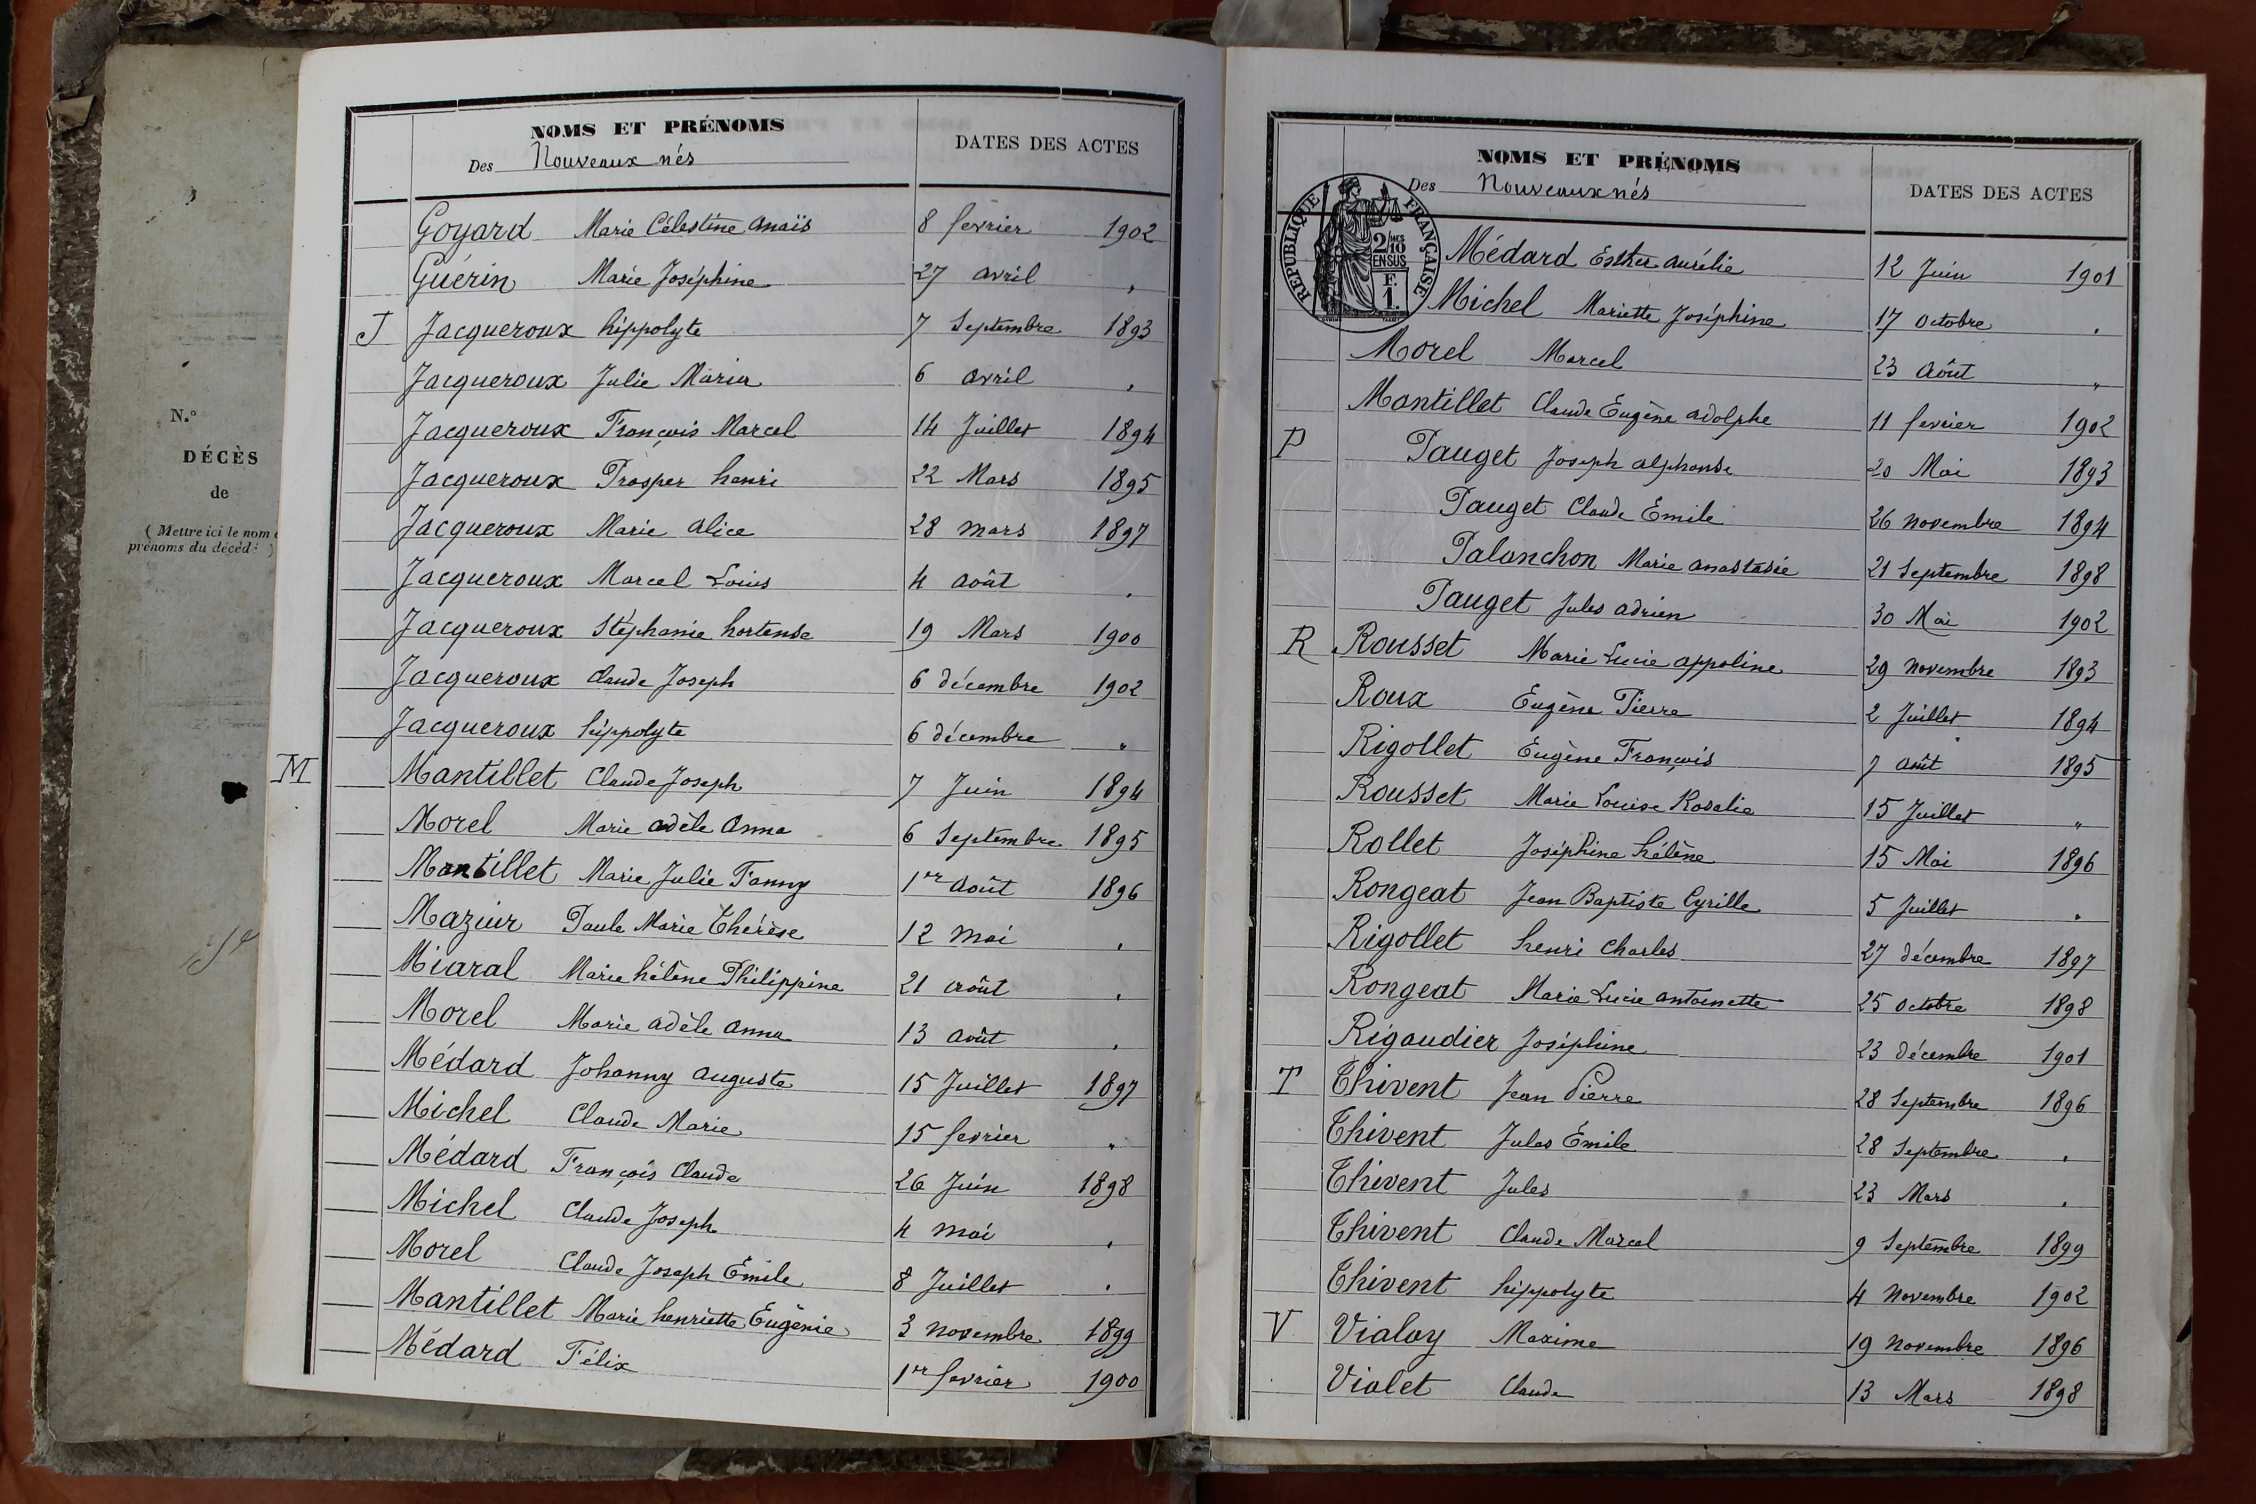 N.°
DÉCÈS
de
( Mettre ici le nom
prénoms du décédé )
NOMS ET PRÉNOMS
Des Nouveaux nés
DATES DES ACTES
Goyard Marie Célestine Anaïs 8 fevrier 1902
Guérin Marie Joséphine 27 avril "
J Jacqueroux hippolyte 7 Septembre 1893
Jacqueroux Julie Maria 6 avril "
Jacqueroux François Marcel 14 Juillet 1894
Jacqueroux Prosper henri 22 Mars 1895
Jacqueroux Marie alice 28 mars 1897
Jacqueroux Marcel Louis 4 août "
Jacqueroux Stéphanie hortense 19 Mars 1900
Jacqueroux Claude Joseph 6 décembre 1902
Jacqueroux hippolyte 6 décembre "
M Mantillet Claude Joseph 7 Juin 1894
Morel Marie adèle Anna 6 Septembre 1895
Mantillet Marie Julie Fanny 1er août 1896
Mazuir Paule Marie Thérèse 12 mai "
Miaral Marie hélène Philippine 21 août "
Morel Marie adèle anna 13 août "
Médard Johanny auguste 15 Juillet 1897
Michel Claude Marie 15 fevrier "
Médard François Claude 26 Juin 1898
Michel Claude Joseph 4 mai "
Morel Claude Joseph Émile 8 Juillet "
Mantillet Marie henriette Eugénie 3 novembre 1899
Médard Félix 1er fevrier 1900
NOMS ET PRÉNOMS
Des Nouveaux nés
DATES DES ACTES
REPUBLIQUE FRANÇAISE
2/10 MES
EN SUS
F.
1.
Médard Esther aurélie 12 Juin 1901
Michel Mariette Joséphine 17 octobre "
Morel Marcel 23 Août "
Mantillet Claude Eugène adolphe 11 fevrier 1902
P Pauget Joseph alphonse 20 Mai 1893
Pauget Claude Emile 26 novembre 1894
Palanchon Marie anastasie 21 Septembre 1898
Pauget Jules adrien 30 Mai 1902
R Rousset Marie Lucie appoline 29 novembre 1893
Roux Eugène Pierre 2 Juillet 1894
Rigollet Eugène François 7 août 1895
Rousset Marie Louise Rosalie 15 Juillet "
Rollet Joséphine hélène 15 Mai 1896
Rongeat Jean Baptiste Cyrille 5 Juillet "
Rigollet henri charles 27 décembre 1897
Rongeat Marie Lucie antoinette 25 octobre 1898
Rigaudier Joséphine 23 décembre 1901
T Thivent Jean Pierre 28 Septembre 1896
Thivent Jules Émile 28 Septembre "
Thivent Jules 23 Mars "
Thivent Claude Marcel 9 Septembre 1899
Thivent hippolyte 4 Novembre 1902
V Vialoy Maxime 19 novembre 1896
Vialet Claude 13 Mars 1898